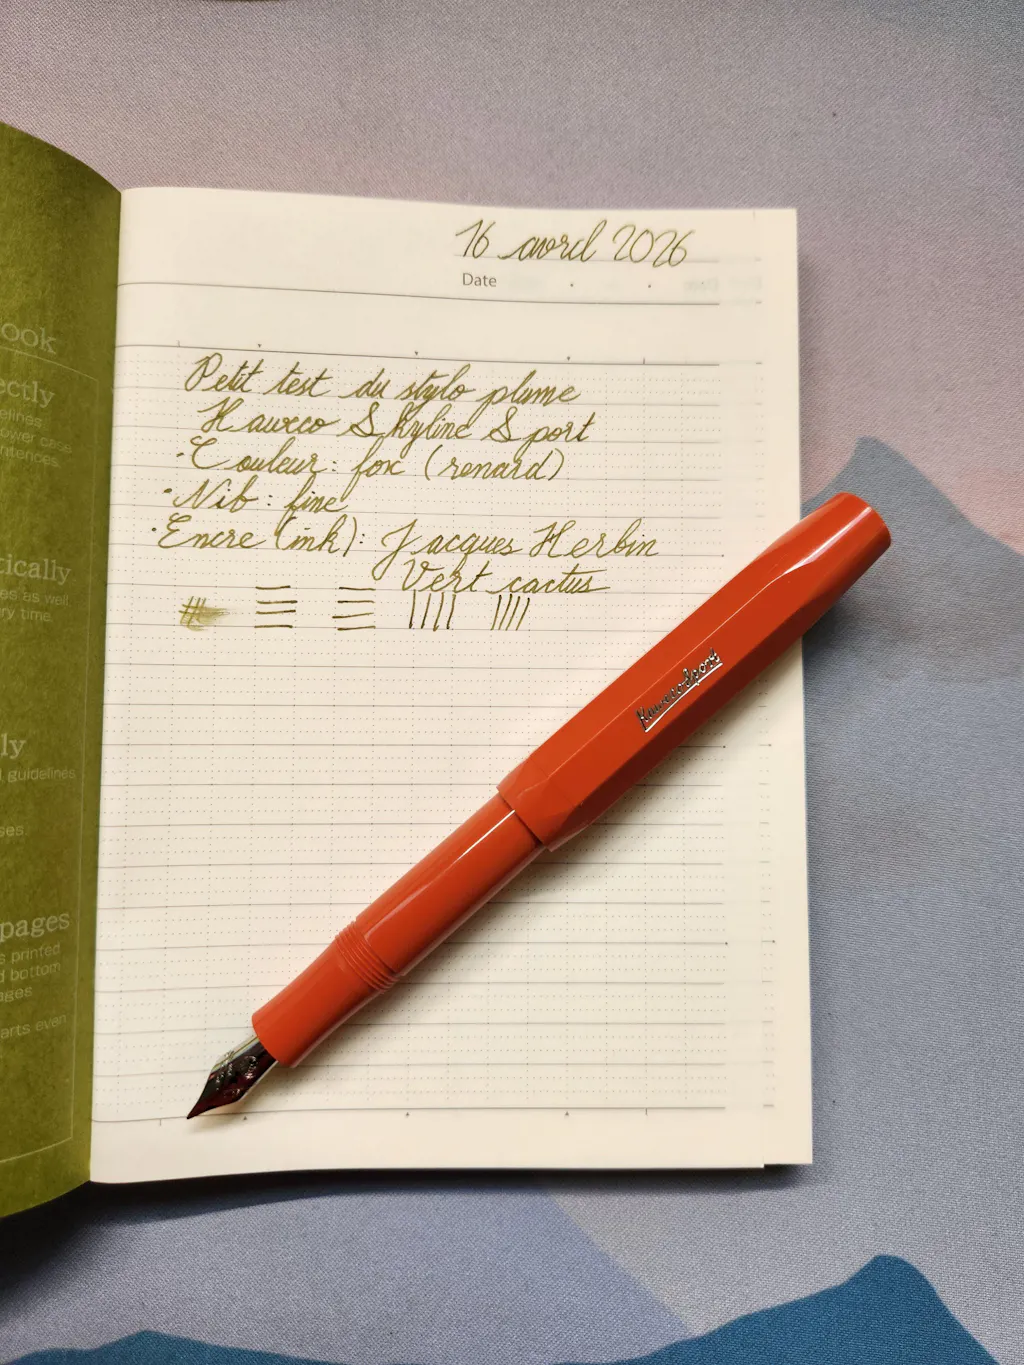 16 avril 2026
Date
Petit test du stylo plume
Kaweco Skyline Sport
· Couleur : fox (renard)
· Nib : fine
· Encre (ink) : Jacques Herbin
Vert cactus
Kaweco Sport
ook
ectly
elines
ower case
ntences.
tically
es as well
ry time.
ly
l guidelines
ses.
pages
s printed
d bottom
ages
arts even